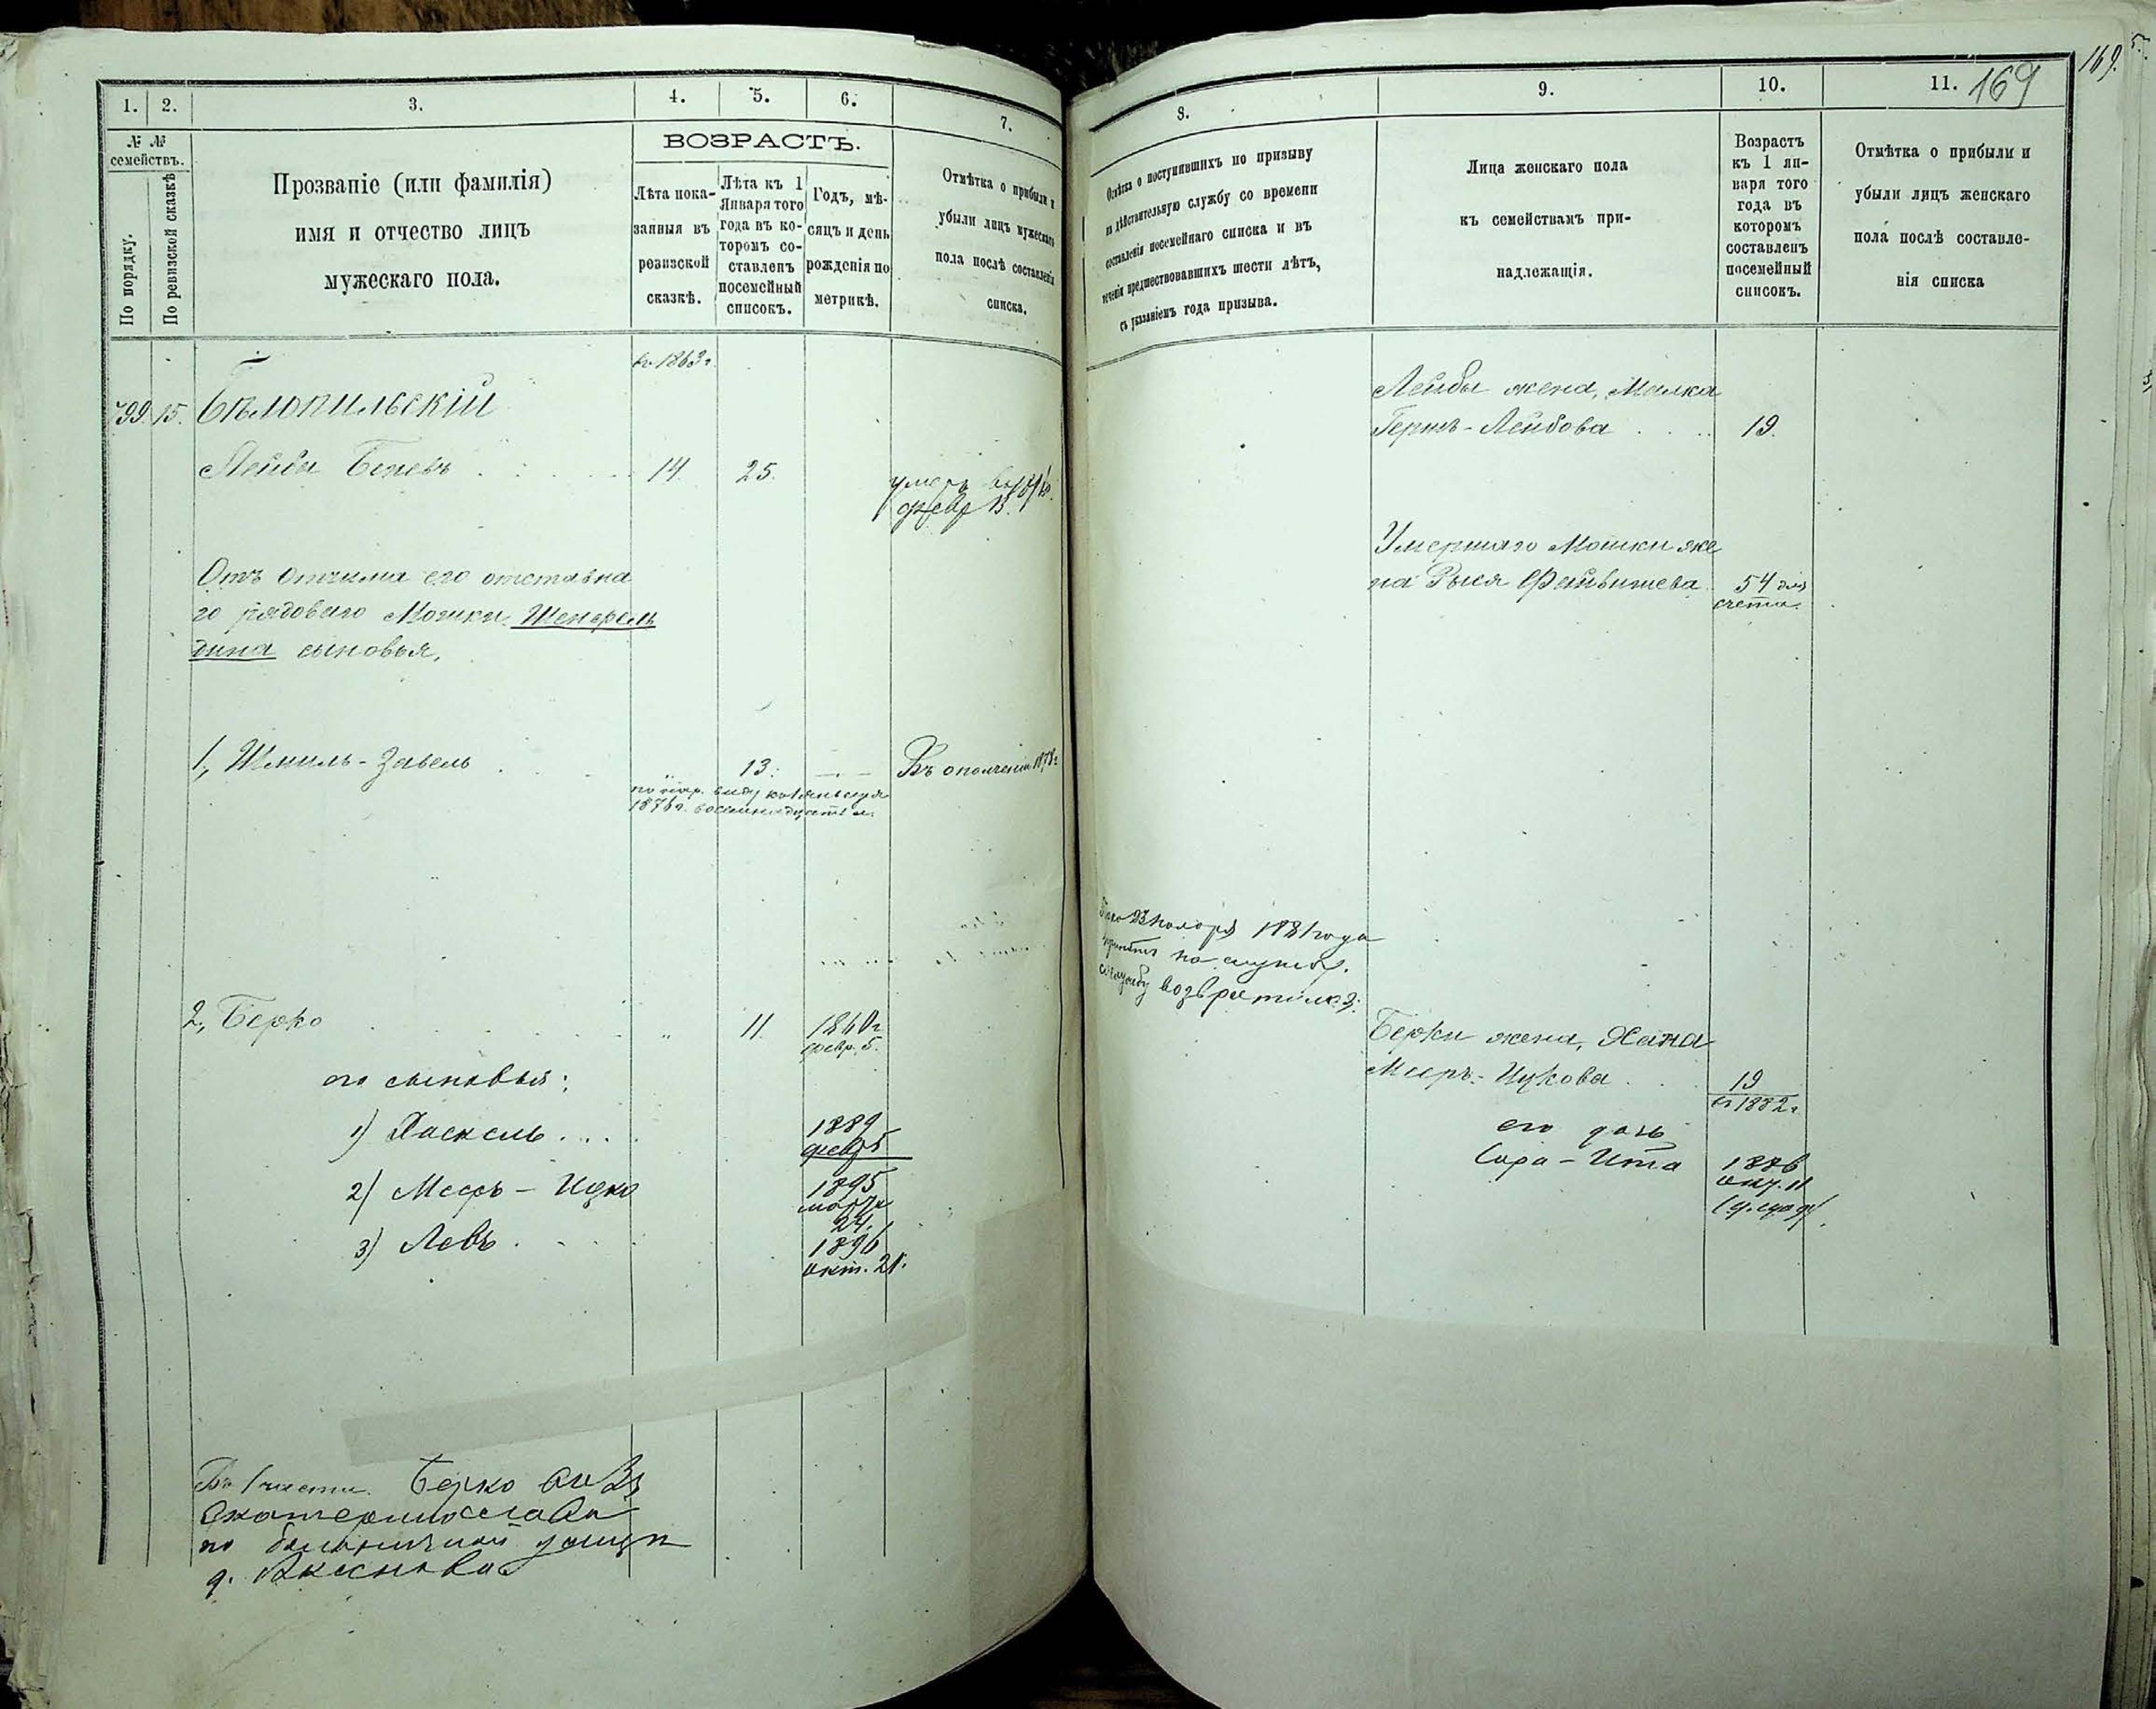 1. 2. 3. 4. 5. 6. 7.
№ №
семействъ.
По порядку.
По ревизской сказкѣ
Прозваніе (или фамилія)
имя и отчество лицъ
мужескаго пола.
ВОЗРАСТЪ.
Лѣта пока-
занныя въ
ревизской
сказкѣ.
Лѣта къ 1
Января того
года въ ко-
торомъ со-
ставленъ
посемейный
списокъ.
Годъ, мѣ-
сяцъ и день
рожденія по
метрикѣ.
Отмѣтка о прибыли и
убыли лицъ мужескаго
пола послѣ составленія
списка.
въ 1863 г.
799. 15. Бѣлопильскій
Лейба 14. 25.
умеръ
февр 13.
Отъ отчима его отставна
го рядоваго Мошки Шенфель
дина сыновья,
1, Шмиль-Завель 13. Въ ополченіи 1878 г.
по нар. виду
1876 г.
2, Берко 11. 1860 г.
февр. 5.
его сыновья:
1) Хаскель . . . 1889
февр 5
2) Мееръ - Ицко 1895
марта
24.
3) Левъ . . . 1896
окт. 21.
Во 1 части. Берко
Екатеринослава
по больничной улицѣ
д.
8. 9. 10. 11. 169
169.
Отмѣтка о поступившихъ по призыву
на дѣйствительную службу со времени
составленія посемейнаго списка и въ
теченіи предшествовавшихъ шести лѣтъ,
съ указаніемъ года призыва.
Лица женскаго пола
къ семействамъ при-
надлежащія.
Возрастъ
къ 1 ян-
варя того
года въ
которомъ
составленъ
посемейный
списокъ.
Отмѣтка о прибыли и
убыли лицъ женскаго
пола послѣ составле-
нія списка
Лейбы жена, Малка
Герть-Лейбова . . . 19.
Умершаго Мошки же
на Рыся Файвишева 54 для
счета.
23 ноября 1881 года
принятъ на службу.
возвратился
Берки жена, Хана
Мееръ-Ицкова . . . 19
въ 1882 г.
его дочь
Сара - Ита 1886
окт. 11